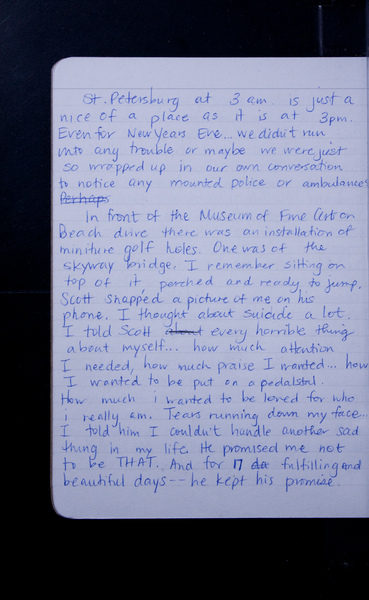 St. Petersburg at 3 am. is just a
nice of a place as it is at 3pm.
Even for New Years Eve... we didn't run
into any trouble or maybe we were just
so wrapped up in our own conversation
to notice any mounted police or ambulances
Perhaps
In front of the Museum of Fine Art on
Beach drive there was an installation of
miniture golf holes. One was of the
skyway bridge. I remember sitting on
top of it, perched and ready to jump.
Scott snapped a picture of me on his
phone. I thought about suicide a lot.
I told Scott about every horrible thing
about myself... how much attention
I needed, how much praise I wanted... how
I wanted to be put on a pedalstal.
How much i wanted to be loved for who
i really am. Tears running down my face...
I told him I couldn't handle another sad
thing in my life. He promised me not
to be THAT. And for 17 fulfilling and
beautiful days -- he kept his promise.